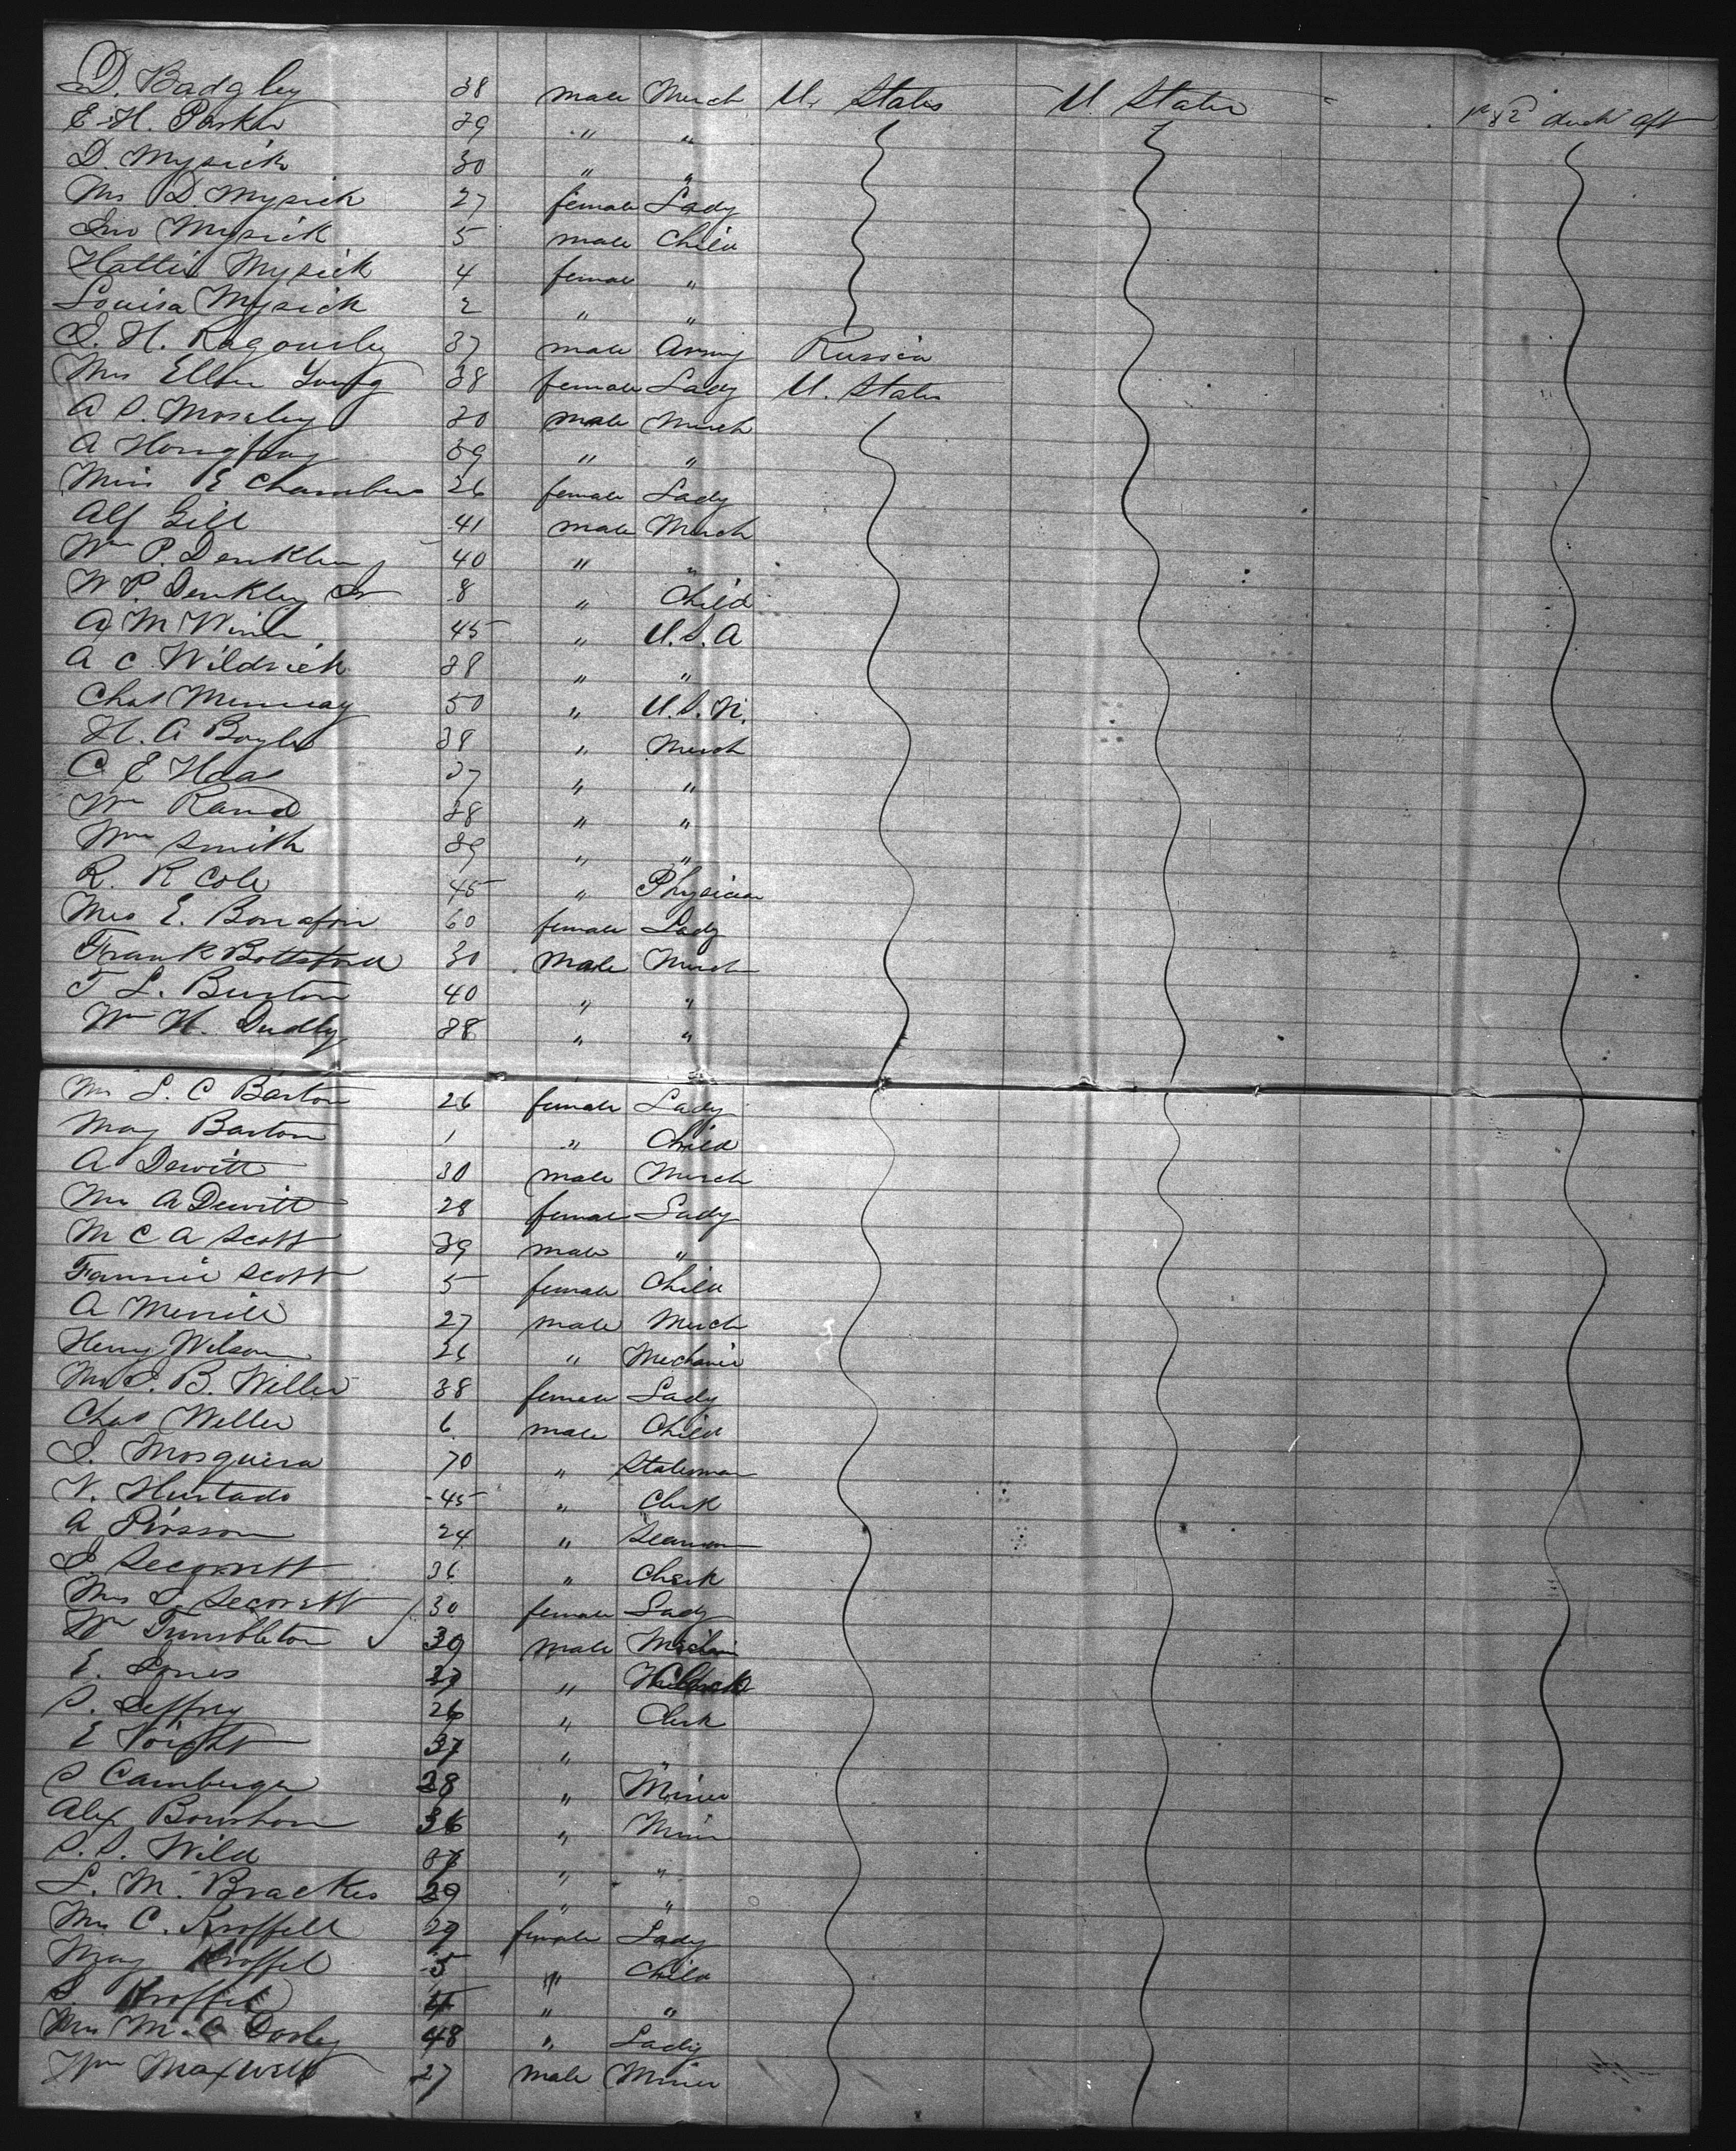 D. Badgley 38 male Merch U. States U. States 1st & 2d deck aft
E. H. Parker 29 " "
D. Mysick 30 " "
Mrs D. Mysick 27 female Lady
Jno Mysick 5 male Child
Hattie Mysick 4 female "
Louisa Mysick 2 " "
37 male Army Russia
Mrs Ellen Young 38 female Lady U. States
A S. Moseley 30 male Merch
A 39 " "
Miss E Chambers 26 female Lady
Alf Gill 41 male Merch
Wm P. 40 " "
W P. Denkley Jr 8 " Child
A M 45 " U.S.A
A C. Wildrick 38 " "
Chas Murray 50 " U.S.N.
H. A Boyle 38 " Merch
C E Haas 37 " "
Wm Rand 38 " "
Wm Smith 39 " "
R. R Cole 45 " Physician
Mrs E. 60 female Lady
Frank Bottsford 30 Male Merch
T L. Burton 40 " "
Wm H. Dudly 38 " "
Mrs L. C Barton 26 female Lady
May Barton 1 " Child
A Dewitt 30 male Merch
Mrs A Dewitt 28 female Lady
M C A Scott 39 male "
Fannie Scott 5 female Child
A Merrill 27 male Merch
Henry Wilson 26 " Mechanic
Mrs J. B. Weller 38 female Lady
Chas Weller 6 male Child
J. Mosquera 70 " Statesman
N. Hurtado 45 " Clerk
A Pirsson 24 " Seaman
J 36 " Clerk
Mrs J. 30 female Lady
Wm Tumbleton 39 male
E. Jones 37 "
S. Jeffrey 26 " Clerk
E Voight 37 " "
S Camberger 28 " Miner
Alex Bourbon 36 " Miner
S. S. Wild 37 " "
L. M. Brackes 29 " "
Mrs C. Kroffell 29 female Lady
May Kroffel 5 " Child
S. Kroffel 4 " "
Mrs M. C Dorley 48 " Lady
Wm Maxwell 27 male Miner